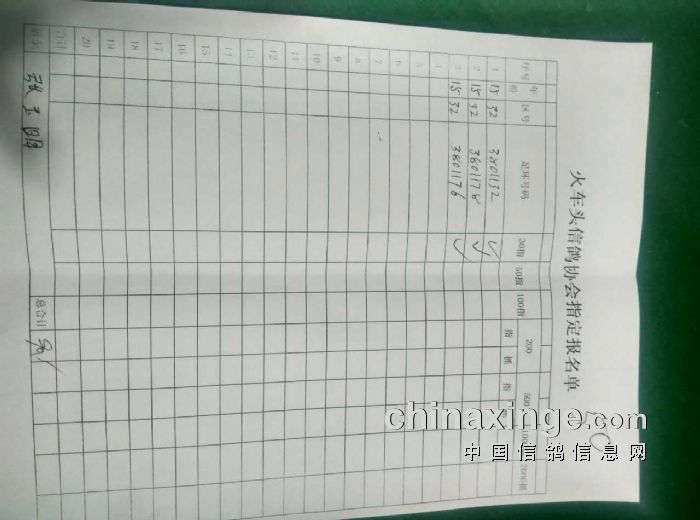 火车头信鸽协会指定报名单
序号 年份 区号 足环号码 30指 50指 100指 200 指 抓 500 指
1 15 32 3801132 √
2 15 32 3801178 √
3 15 32 3801176 √
4
5
6
7
8
9
10
11
12
13
14
15
16
17
18
19
20
合计
姓名 总合计
chinaxinge.com
中国信鸽信息网